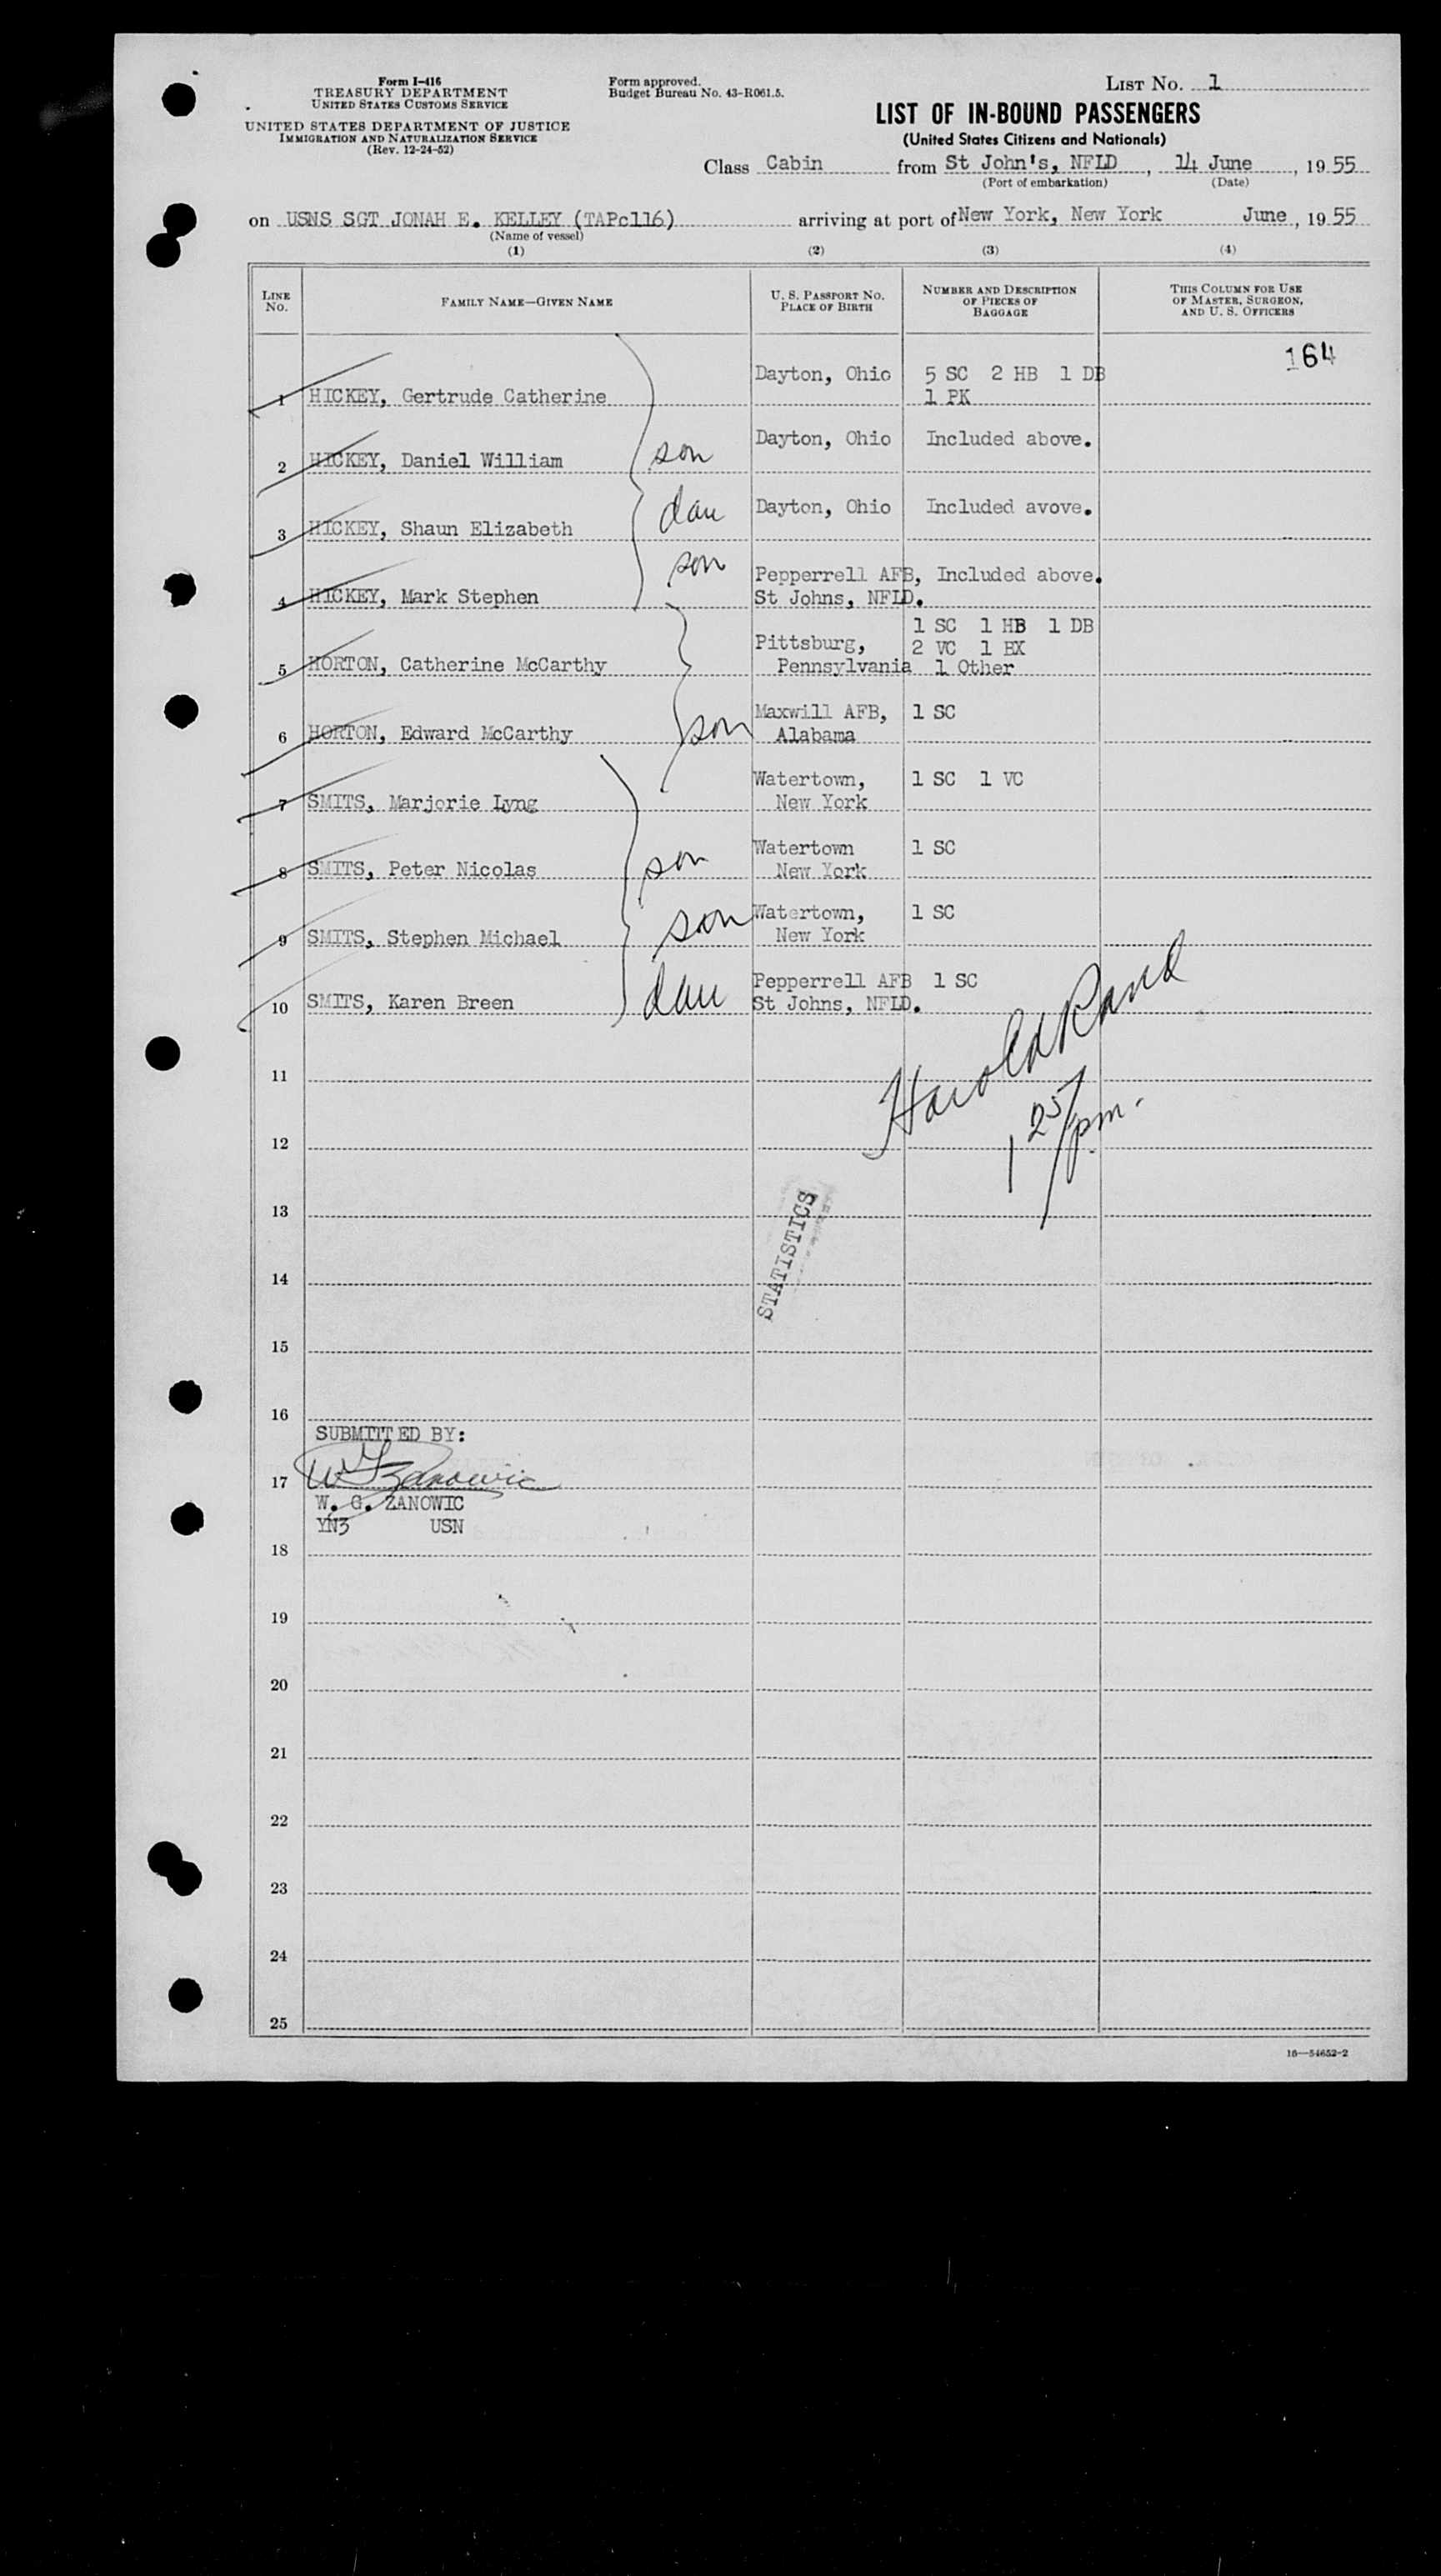 Form I-416
TREASURY DEPARTMENT
UNITED STATES CUSTOMS SERVICE
UNITED STATES DEPARTMENT OF JUSTICE
IMMIGRATION AND NATURALIZATION SERVICE
(Rev. 12-24-52)
Form approved.
Budget Bureau No. 43-R061.5.
LIST NO. 1
LIST OF IN-BOUND PASSENGERS
(United States Citizens and Nationals)
Class Cabin from St John's, NFLD, 14 June, 1955
(Port of embarkation) (Date)
on USNS SGT JONAH E. KELLEY (TAPc116) arriving at port of New York, New York June, 1955
(Name of vessel)
(1) (2) (3) (4)
LINE NO. FAMILY NAME—GIVEN NAME U. S. PASSPORT NO. PLACE OF BIRTH NUMBER AND DESCRIPTION OF PIECES OF BAGGAGE THIS COLUMN FOR USE OF MASTER, SURGEON, AND U. S. OFFICERS
164
Dayton, Ohio 5 SC 2 HB 1 DB
1 HICKEY, Gertrude Catherine 1 PK
Dayton, Ohio Included above.
2 HICKEY, Daniel William son
Dayton, Ohio Included avove.
3 HICKEY, Shaun Elizabeth dau
son
Pepperrell AFB, Included above.
4 HICKEY, Mark Stephen St Johns, NFLD.
1 SC 1 HB 1 DB
Pittsburg, 2 VC 1 BX
5 HORTON, Catherine McCarthy Pennsylvania 1 Other
Maxwill AFB, 1 SC
6 HORTON, Edward McCarthy son Alabama
Watertown, 1 SC 1 VC
7 SMITS, Marjorie Lyng New York
Watertown 1 SC
8 SMITS, Peter Nicolas son New York
Watertown, 1 SC
9 SMITS, Stephen Michael son New York
Pepperrell AFB 1 SC
10 SMITS, Karen Breen dau St Johns, NFLD.
Harold Rand
11
1 25/pm.
12
13
STATISTICS
14
15
16
SUBMITTED BY:
17 W G Zanowic
W. G. ZANOWIC
YN3 USN
18
19
20
21
22
23
24
25
16—54652-2